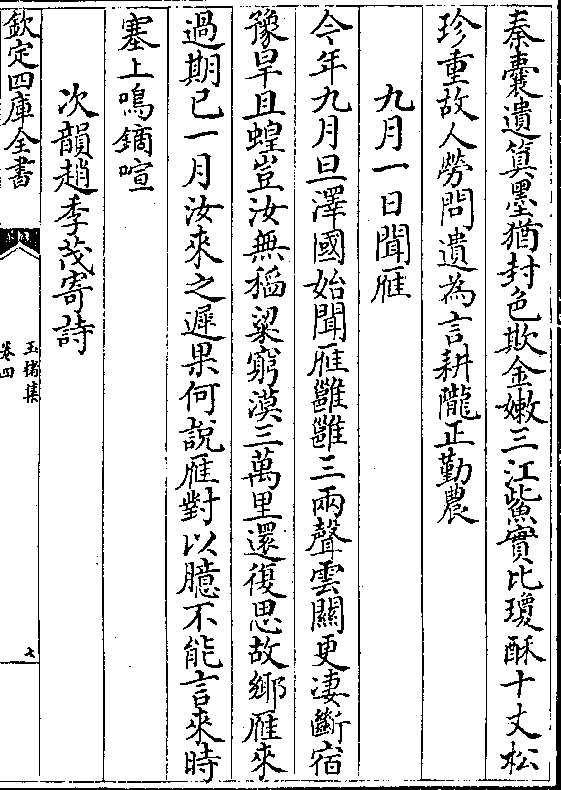 秦囊遺算墨猶封色欺金嫩三江鮆實比瓊酥十丈松
珍重故人勞問遺為言耕隴正勤農
九月一日聞雁
今年九月旦澤國始聞雁雝雝三兩聲雲關更淒斷宿
豫旱且蝗豈汝無稻粱窮漠三萬里還復思故鄉雁來
過期已一月汝來之遲果何說雁對以臆不能言來時
塞上鳴鏑喧
次韻趙季茂寄詩
欽定四庫全書
玉楮集
卷四
七